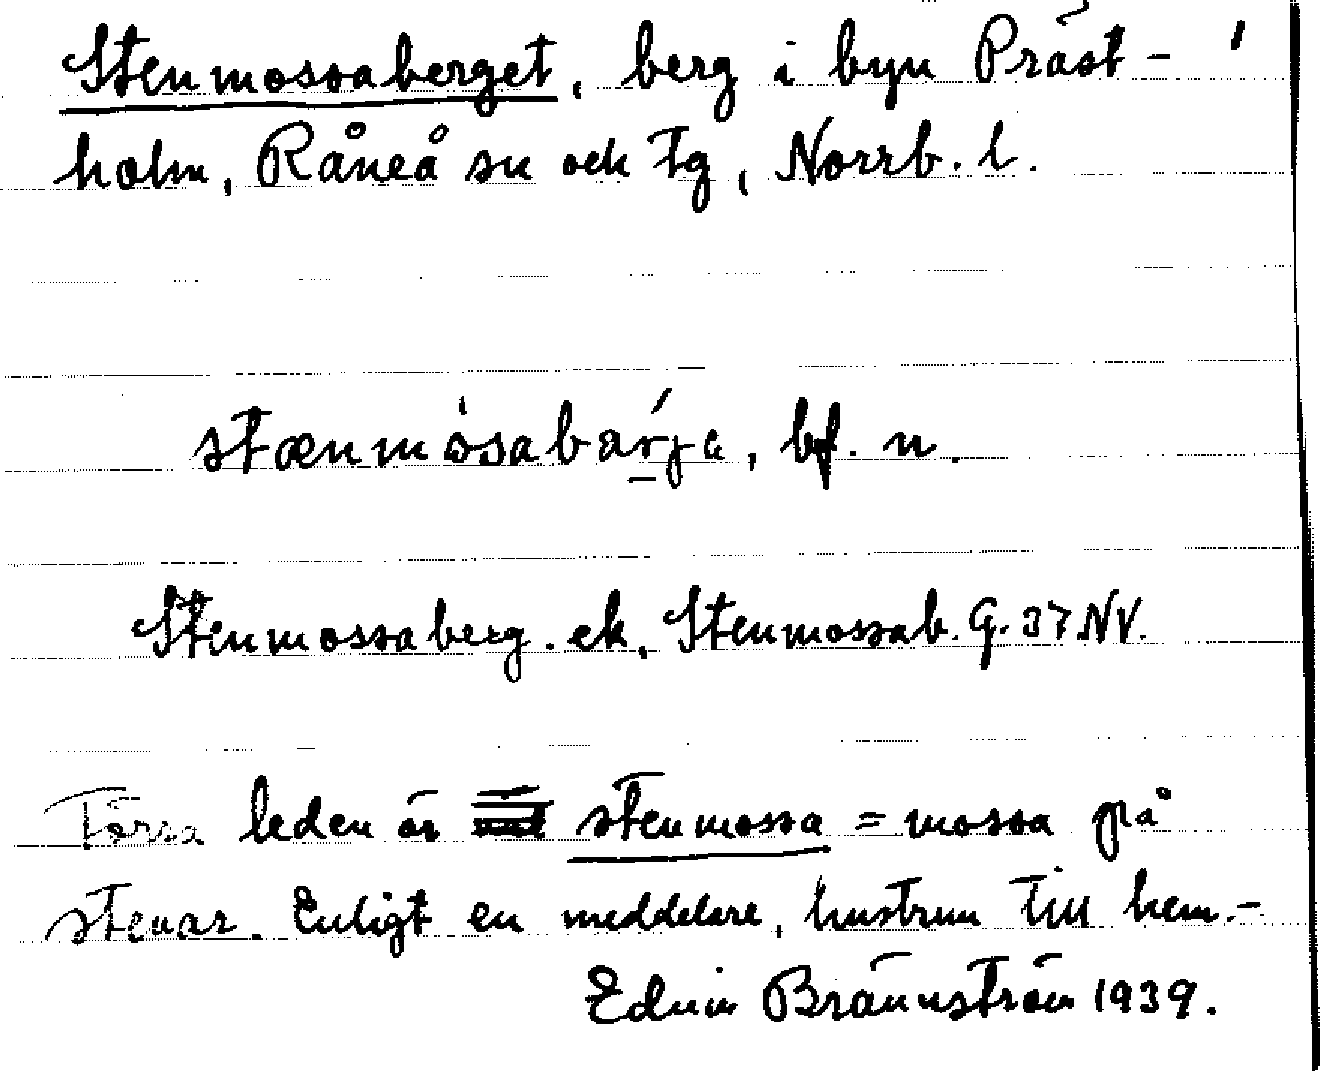 Stenmossaberget, berg i byn Präst-
holm, Råneå sn och tg, Norrb. l.
stænmòsabárja, bf. n.
Stenmossaberg. ek, Stenmossab. G. 37 NV.
Förra leden är stenmossa = mossa på
stenar. Enligt en meddelare, hustrun till hem.-
Edvin Brännström 1939.